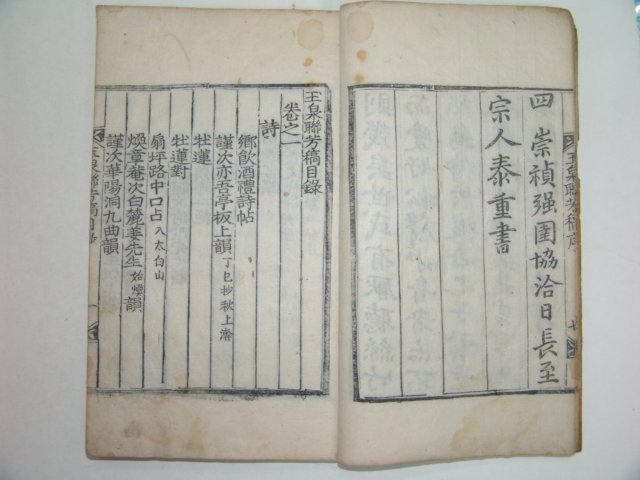 玉泉聯芳稿序
四 崇禎强圉協洽日長至
宗人泰重書
玉泉聯芳稿目錄
卷之一
詩
鄕飮酒禮詩帖
謹次亦吾亭板上韻 丁巳抄秋上澣
牡蓮
牡蓮對
扇坪路中口占 入太白山
煥章菴次白麓姜先生 始煥 韻
謹次華陽洞九曲韻
玉泉聯芳稿目錄 一